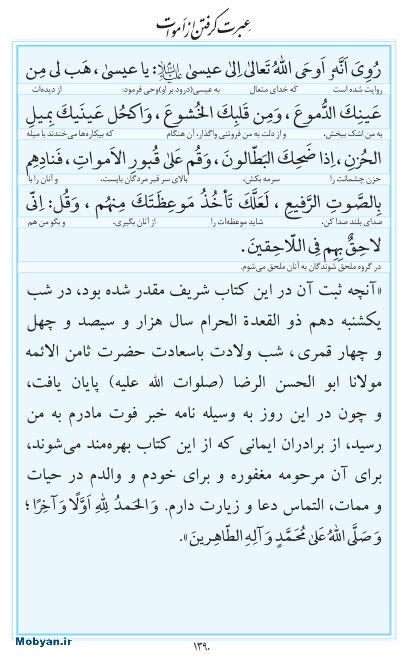 عبرت گرفتن از اموات
رُوِیَ اَنَّهُ اَوحَی اللّهُ تَعالیٰ اِلیٰ عیسیٰ علیه‌السلام: یا عیسیٰ، هَب لی مِن
روایت شده است که خدای متعال به عیسی(درود بر او)وحی فرمود: از دیده‌ات
عَینِكَ الدُّموعَ، وَمِن قَلبِكَ الخُشوعَ، وَاكحُل عَینَیكَ بِمیلِ
به من اشک ببخش، و از دلت به من فروتنی واگذار، آن هنگام که بیکاره‌ها می‌خندند با میله
الحُزنِ، اِذا ضَحِكَ البَطّالونَ، وَقُم عَلیٰ قُبورِ الاَمواتِ، فَنادِهِم
حزن چشمانت را سرمه بکش، بالای سر قبر مردگان بایست، و آنان را با
بِالصَّوتِ الرَّفیعِ، لَعَلَّكَ تَأخُذُ مَوعِظَتَكَ مِنهُم، وَقُل: اِنّی
صدای بلند صدا کن، شاید موعظه‌ات را از آنان بگیری، و بگو من هم
لاحِقٌ بِهِم فِی اللّاحِقینَ.
در گروه ملحق شوندگان به آنان ملحق می‌شوم.
«آنچه ثبت آن در این کتاب شریف مقدر شده بود، در شب
یکشنبه دهم ذو القعدة الحرام سال هزار و سیصد و چهل
و چهار قمری، شب ولادت باسعادت حضرت ثامن الائمه
مولانا ابو الحسن الرضا (صلوات الله علیه) پایان یافت،
و چون در این روز به وسیله نامه خبر فوت مادرم به من
رسید، از برادران ایمانی که از این کتاب بهره‌مند می‌شوند،
برای آن مرحومه مغفوره و برای خودم و والدم در حیات
و ممات، التماس دعا و زیارت دارم. وَالحَمدُ لِلّٰهِ اَوَّلًا وَآخِرًا؛
وَصَلَّی اللّٰهُ عَلیٰ مُحَمَّدٍ وَآلِهِ الطّاهِرینَ».
Mobyan.ir
۱۳۹۰